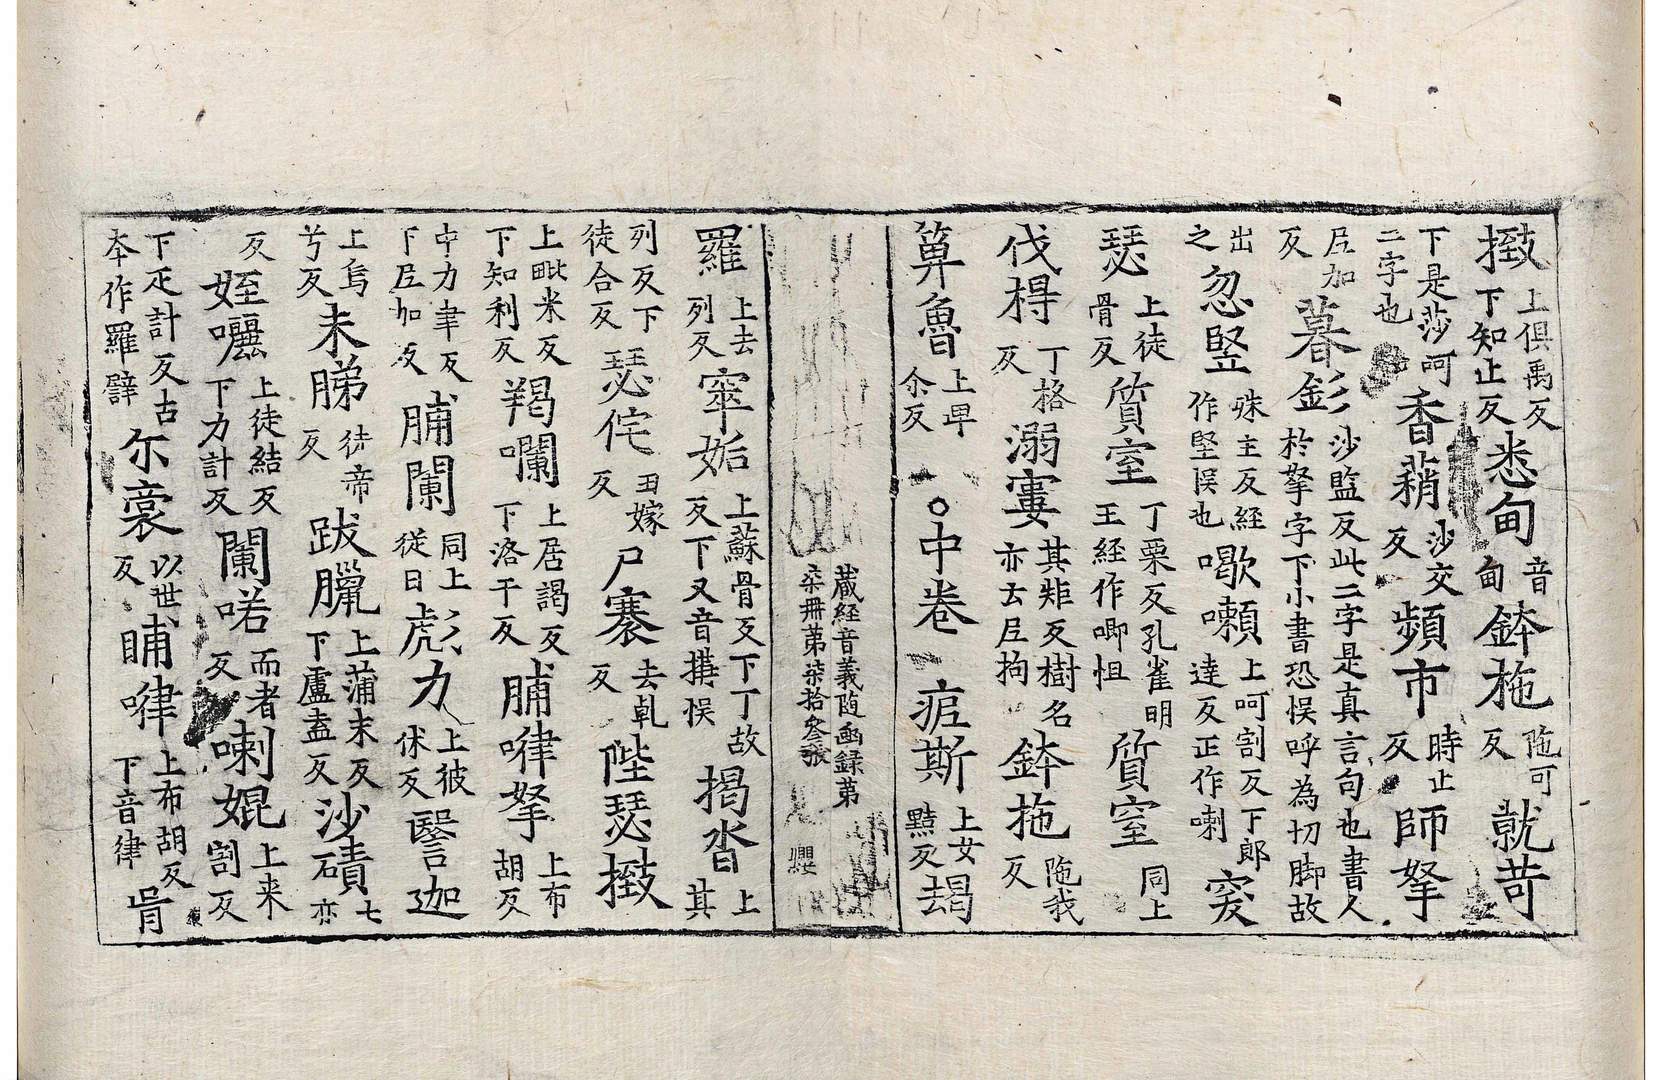 㨖上俱禹反下知止反悉甸音甸鉢柂陁可反就苛
下是莎呵二字也香䕠沙交反頻市時止反師拏
丘加反暮釤沙監反此二字是真言句也書人於拏字下小書恐悮呼為切脚故
出之忽竪殊主反經作堅悮也喝囒上呵割反下郎達反正作喇窔
瑟上徒骨反質室丁栗反孔雀明王經作唧怚質室同上
伐棏丁格反溺寠其矩反樹名亦去丘拘鉢柂陁我反
算魯上卑尒反 ○中卷 痆斯上女黠反朅
藏經音義隨函録苐柒冊苐柒拾叄張
羅上去列反窣姤上蘇骨反下丁故反下又音搆悮揭沓上其
列反下徒合反瑟侘丑嫁反尸褰去乹反陛瑟㨖
上毗米反下知利反羯囒上居謁反下洛干反脯㗚拏上布胡反
中力聿反下丘加反脯闌同上彪力上彼休反從日毉迦
上烏兮反未睇徒帝反跋臘上蒲末反下盧盍反沙磧七亦
反姪㘑上徒結反下力計反闌喏而者反喇娓上来割反
下疋計反古本作羅譬尔裔以世反晡㗚上布胡反下音律肯